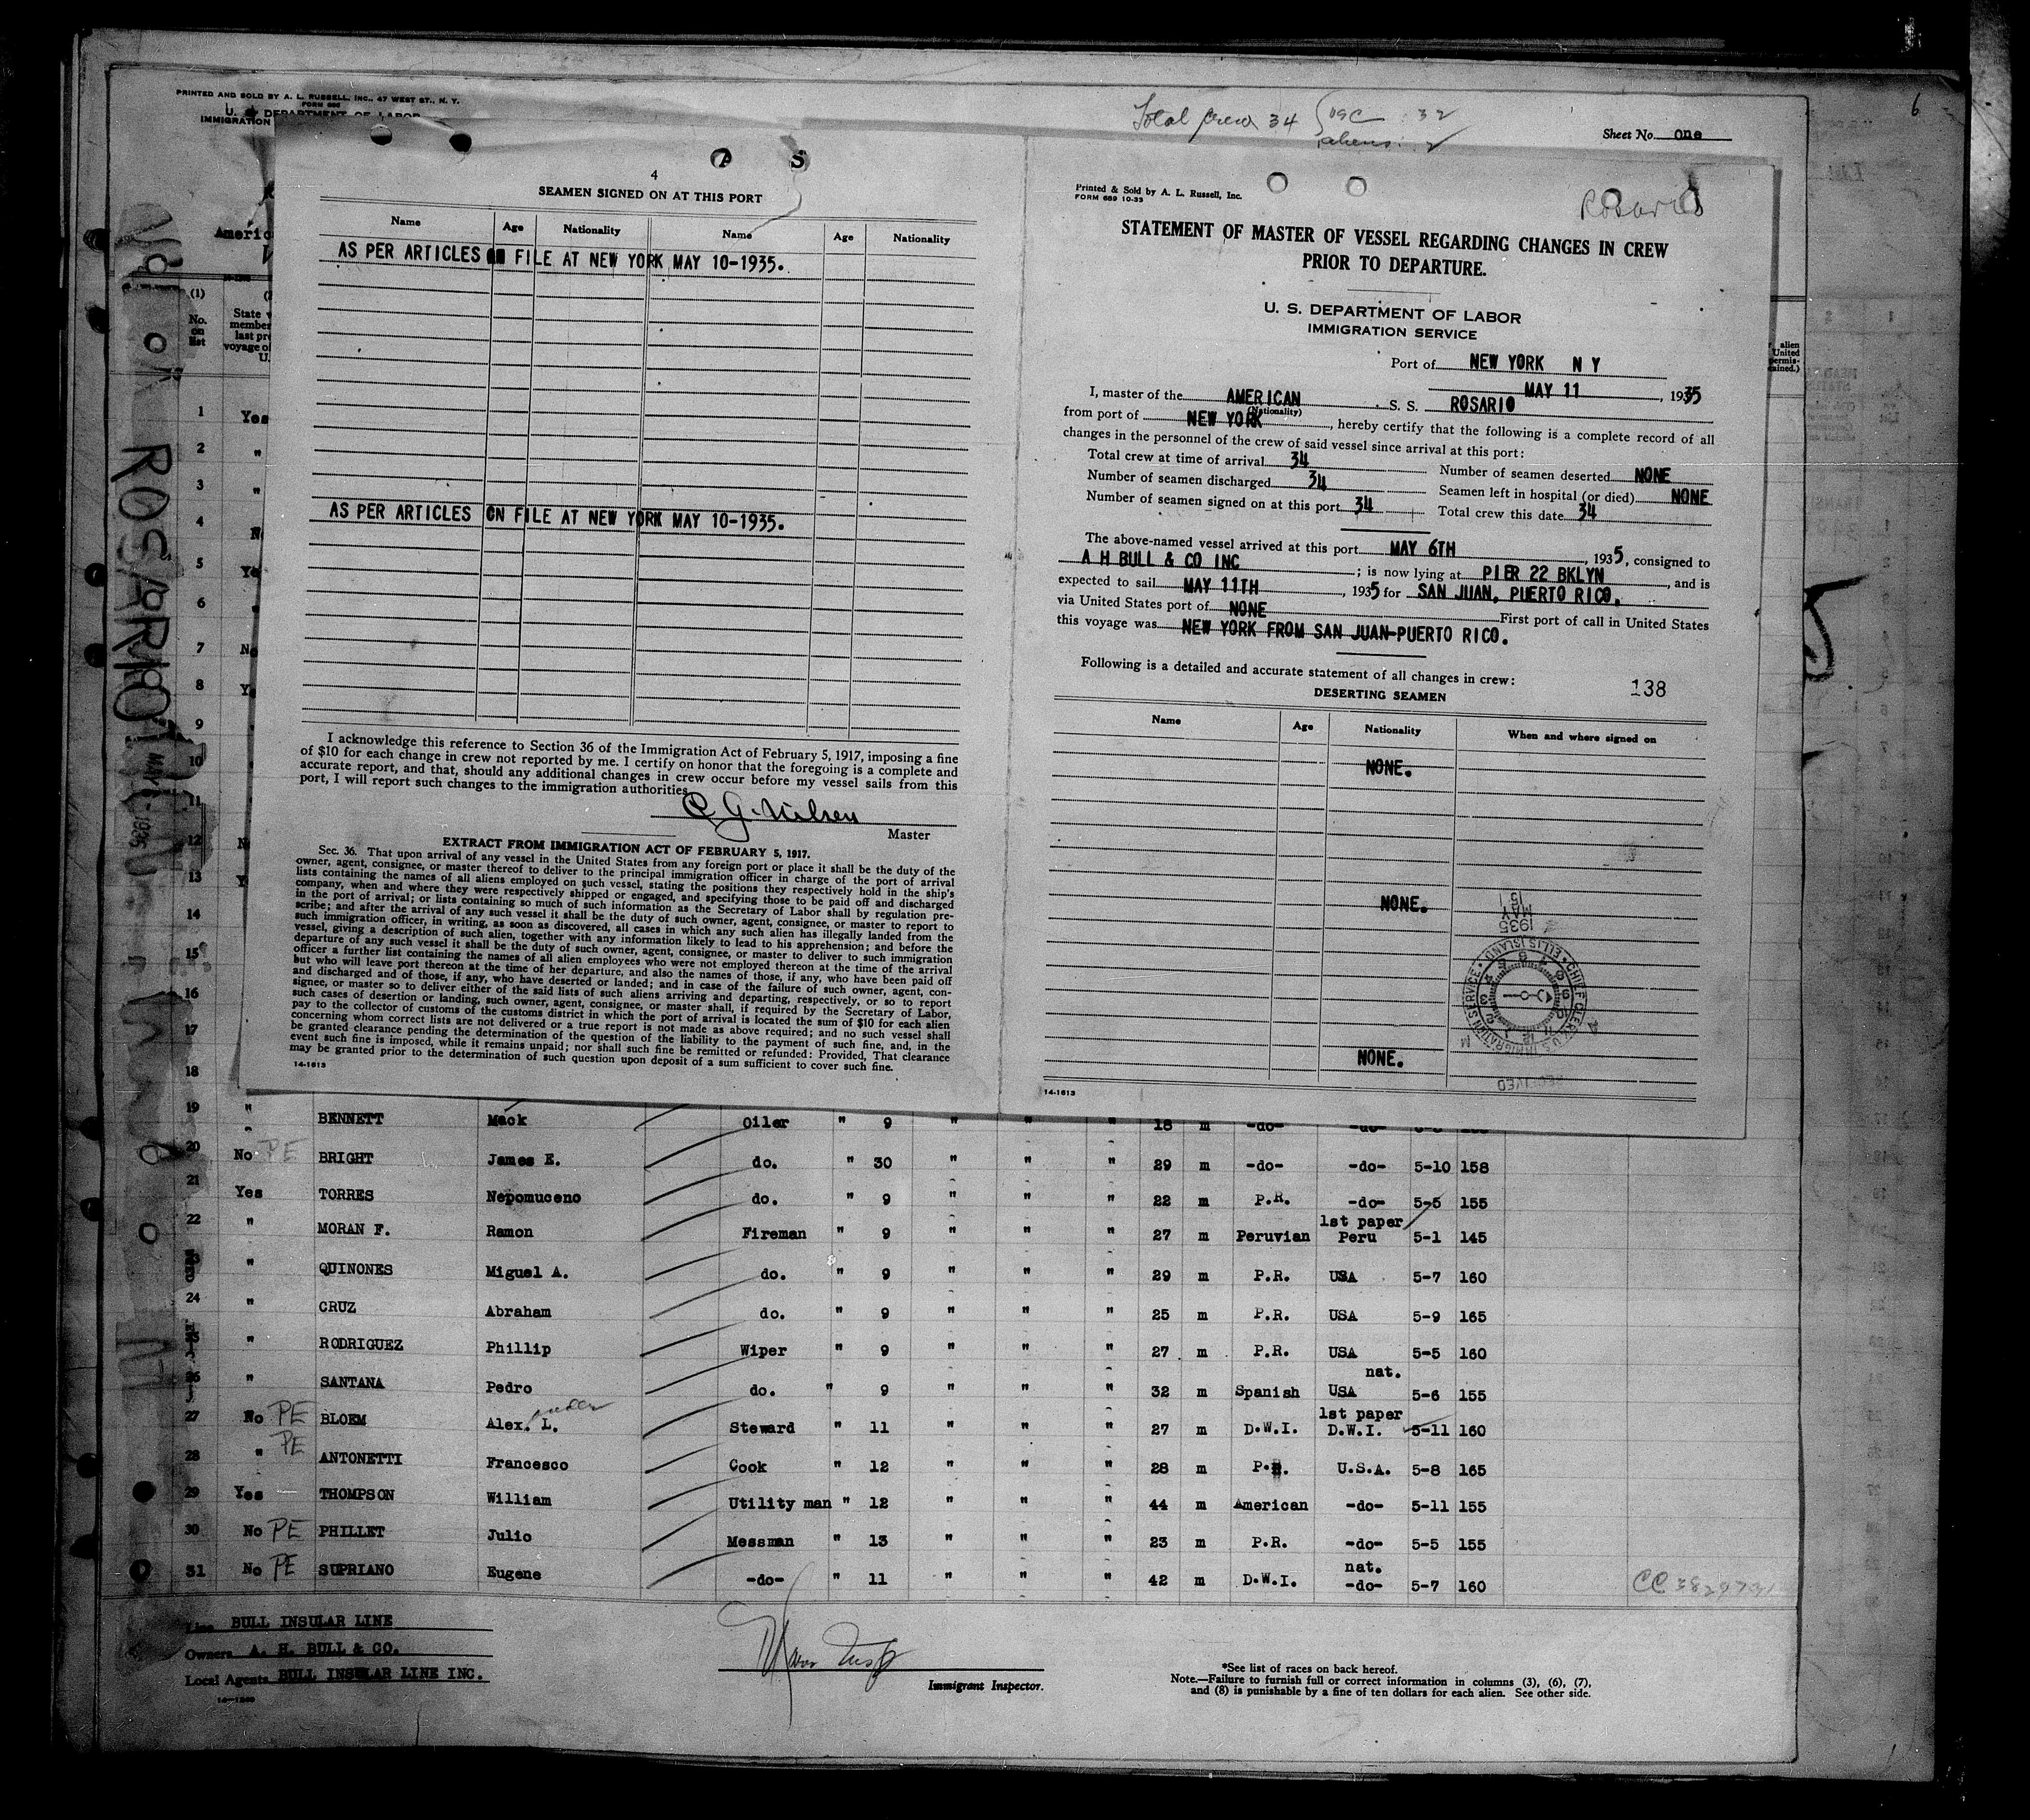 PRINTED AND SOLD BY A. L. RUSSELL, INC., 47 WEST ST., N. Y.
FORM 686
U. S. DEPARTMENT OF LABOR
IMMIGRATION
Total crew 34 USC : 32
aliens : 2
Sheet No. one
6
(1)
No. on list
ROSARIO
MAY 6 - 1935
4
SEAMEN SIGNED ON AT THIS PORT
Name Age Nationality Name Age Nationality
AS PER ARTICLES ON FILE AT NEW YORK MAY 10-1935.
AS PER ARTICLES ON FILE AT NEW YORK MAY 10-1935.
I acknowledge this reference to Section 36 of the Immigration Act of February 5, 1917, imposing a fine
of $10 for each change in crew not reported by me. I certify on honor that the foregoing is a complete and
accurate report, and that, should any additional changes in crew occur before my vessel sails from this
port, I will report such changes to the immigration authorities.
C G Nilsen
Master
EXTRACT FROM IMMIGRATION ACT OF FEBRUARY 5, 1917.
Sec. 36. That upon arrival of any vessel in the United States from any foreign port or place it shall be the duty of the
owner, agent, consignee, or master thereof to deliver to the principal immigration officer in charge of the port of arrival
lists containing the names of all aliens employed on such vessel, stating the positions they respectively hold in the ship's
company, when and where they were respectively shipped or engaged, and specifying those to be paid off and discharged
in the port of arrival; or lists containing so much of such information as the Secretary of Labor shall by regulation pre-
scribe; and after the arrival of any such vessel it shall be the duty of such owner, agent, consignee, or master to report to
such immigration officer, in writing, as soon as discovered, all cases in which any such alien has illegally landed from the
vessel, giving a description of such alien, together with any information likely to lead to his apprehension; and before the
departure of any such vessel it shall be the duty of such owner, agent, consignee, or master to deliver to such immigration
officer a further list containing the names of all alien employees who were not employed thereon at the time of the arrival
but who will leave port thereon at the time of her departure, and also the names of those, if any, who have been paid off
and discharged and of those, if any, who have deserted or landed; and in case of the failure of such owner, agent, con-
signee, or master so to deliver either of the said lists of such aliens arriving and departing, respectively, or so to report
such cases of desertion or landing, such owner, agent, consignee, or master shall, if required by the Secretary of Labor,
pay to the collector of customs of the customs district in which the port of arrival is located the sum of $10 for each alien
concerning whom correct lists are not delivered or a true report is not made as above required; and no such vessel shall
be granted clearance pending the determination of the question of the liability to the payment of such fine, and, in the
event such fine is imposed, while it remains unpaid; nor shall such fine be remitted or refunded: Provided, That clearance
may be granted prior to the determination of such question upon deposit of a sum sufficient to cover such fine.
14-1613
Printed & Sold by A. L. Russell, Inc.
FORM 689 10-33
Rosario
STATEMENT OF MASTER OF VESSEL REGARDING CHANGES IN CREW
PRIOR TO DEPARTURE.
U. S. DEPARTMENT OF LABOR
IMMIGRATION SERVICE
Port of NEW YORK N Y
MAY 11, 1935
I, master of the AMERICAN S. S. ROSARIO
(Nationality)
from port of NEW YORK, hereby certify that the following is a complete record of all
changes in the personnel of the crew of said vessel since arrival at this port:
Total crew at time of arrival 34 Number of seamen deserted NONE
Number of seamen discharged 34 Seamen left in hospital (or died) NONE
Number of seamen signed on at this port 34 Total crew this date 34
The above-named vessel arrived at this port MAY 6TH, 1935, consigned to
A H BULL & CO INC; is now lying at PIER 22 BKLYN, and is
expected to sail MAY 11TH, 1935 for SAN JUAN, PUERTO RICO.
via United States port of NONE First port of call in United States
this voyage was NEW YORK FROM SAN JUAN-PUERTO RICO.
Following is a detailed and accurate statement of all changes in crew:
138
DESERTING SEAMEN
Name Age Nationality When and where signed on
NONE.
NONE.
NONE.
RECEIVED
CHIEF CLERK U. S. IMMIGRATION SERVICE ELLIS ISLAND
1935 MAY 15
14-1613
19 " BENNETT Mack Oiler " 9 " " " 18 m -do- -do-
20 No PE BRIGHT James E. do. " 30 " " " 29 m -do- -do- 5-10 158
21 Yes TORRES Nepomuceno do. " 9 " " " 22 m P.R. -do- 5-5 155
22 " MORAN F. Ramon Fireman " 9 " " " 27 m Peruvian 1st paper Peru 5-1 145
23 " QUINONES Miguel A. do. " 9 " " " 29 m P.R. USA 5-7 160
24 " CRUZ Abraham do. " 9 " " " 25 m P.R. USA 5-9 165
25 " RODRIGUEZ Phillip Wiper " 9 " " " 27 m P.R. USA 5-5 160
26 " SANTANA Pedro do. " 9 " " " 32 m Spanish nat. USA 5-6 155
27 No PE BLOEM Alex. L. Steward " 11 " " " 27 m D.W.I. 1st paper D.W.I. 5-11 160
28 " PE ANTONETTI Francesco Cook " 12 " " " 28 m P.R. U.S.A. 5-8 165
29 Yes THOMPSON William Utility man " 12 " " " 44 m American -do- 5-11 155
30 No PE PHILLET Julio Messman " 13 " " " 23 m P.R. -do- 5-5 155
31 No PE SUPRIANO Eugene -do- " 11 " " " 42 m D.W.I. nat. -do- 5-7 160
Line BULL INSULAR LINE
Owners A. H. BULL & CO.
Local Agents BULL INSULAR LINE INC.
Immigrant Inspector.
*See list of races on back hereof.
Note.—Failure to furnish full or correct information in columns (3), (6), (7),
and (8) is punishable by a fine of ten dollars for each alien. See other side.